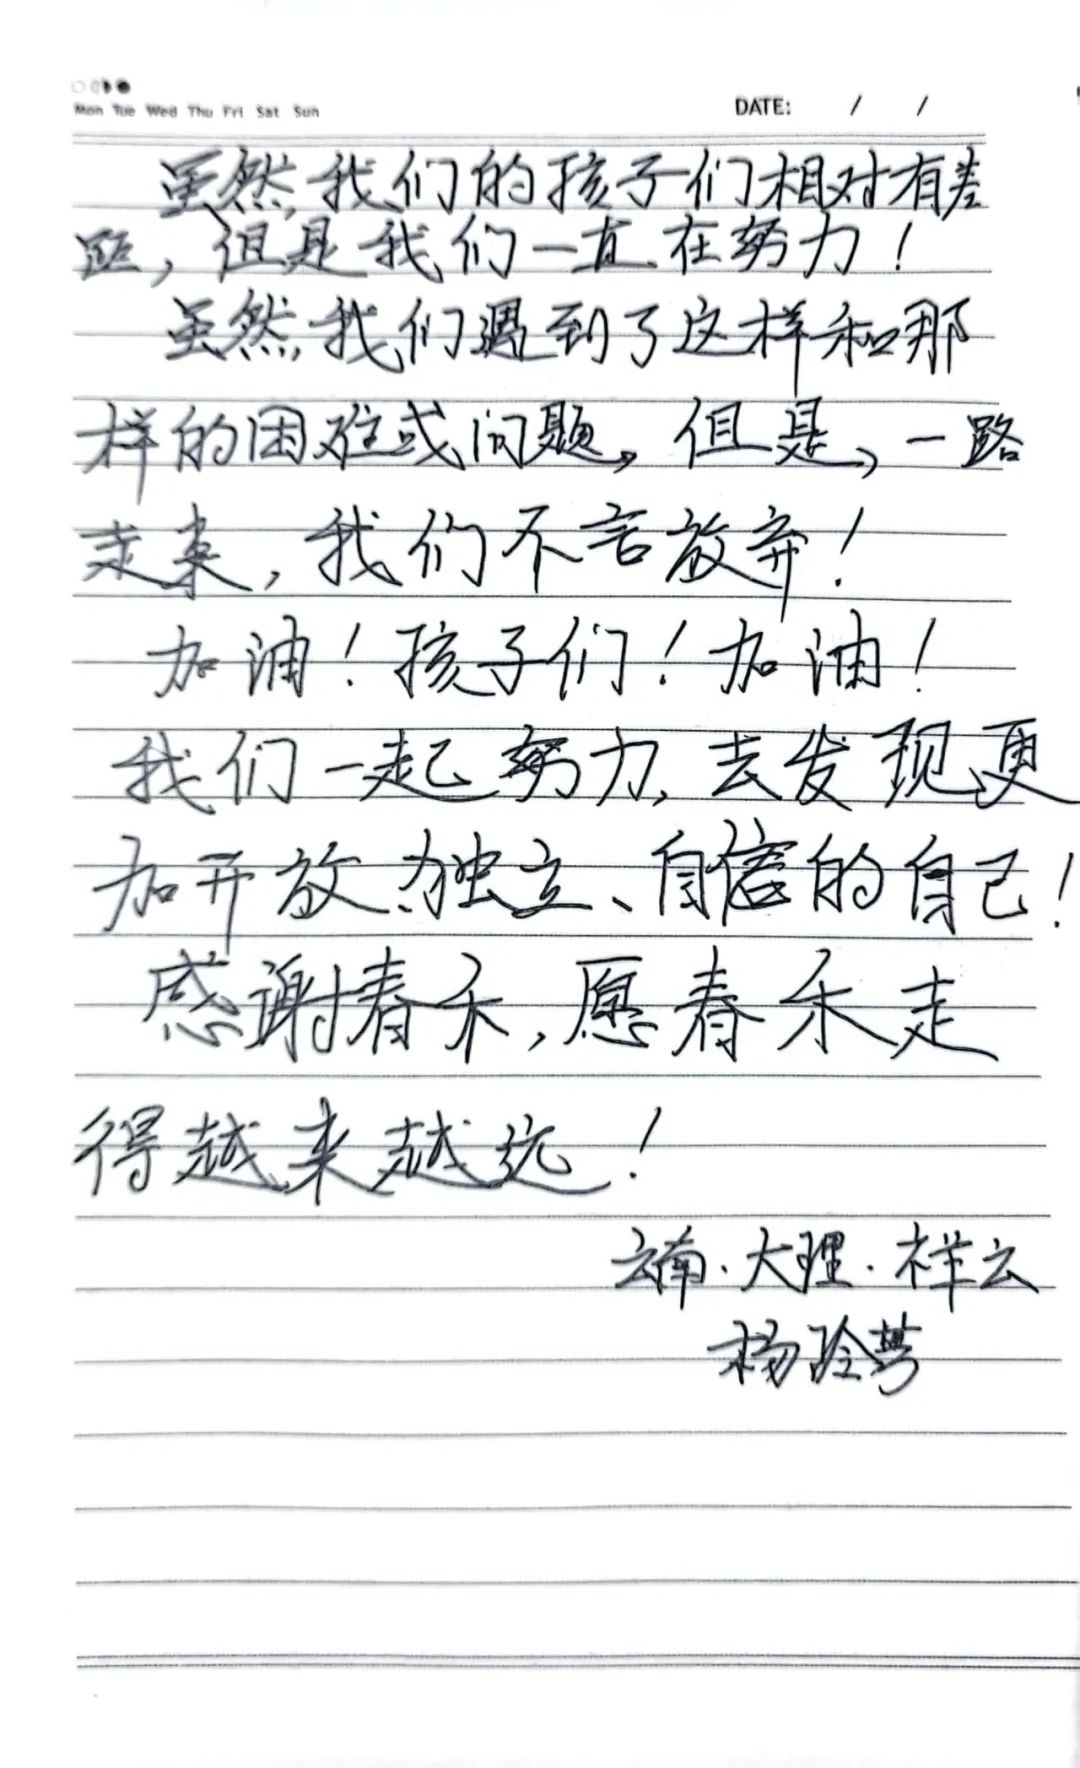 Mon Tue Wed Thu Fri Sat Sun
DATE: / /
虽然,我们的孩子们相对有差
距，但是我们一直在努力！
虽然,我们遇到了这样和那
样的困难或问题，但是，一路
走来，我们不言放弃！
加油！孩子们！加油！
我们一起努力,去发现更
加开放、独立、自信的自己！
感谢春禾，愿春禾走
得越来越远！
云南·大理·祥云
杨玲